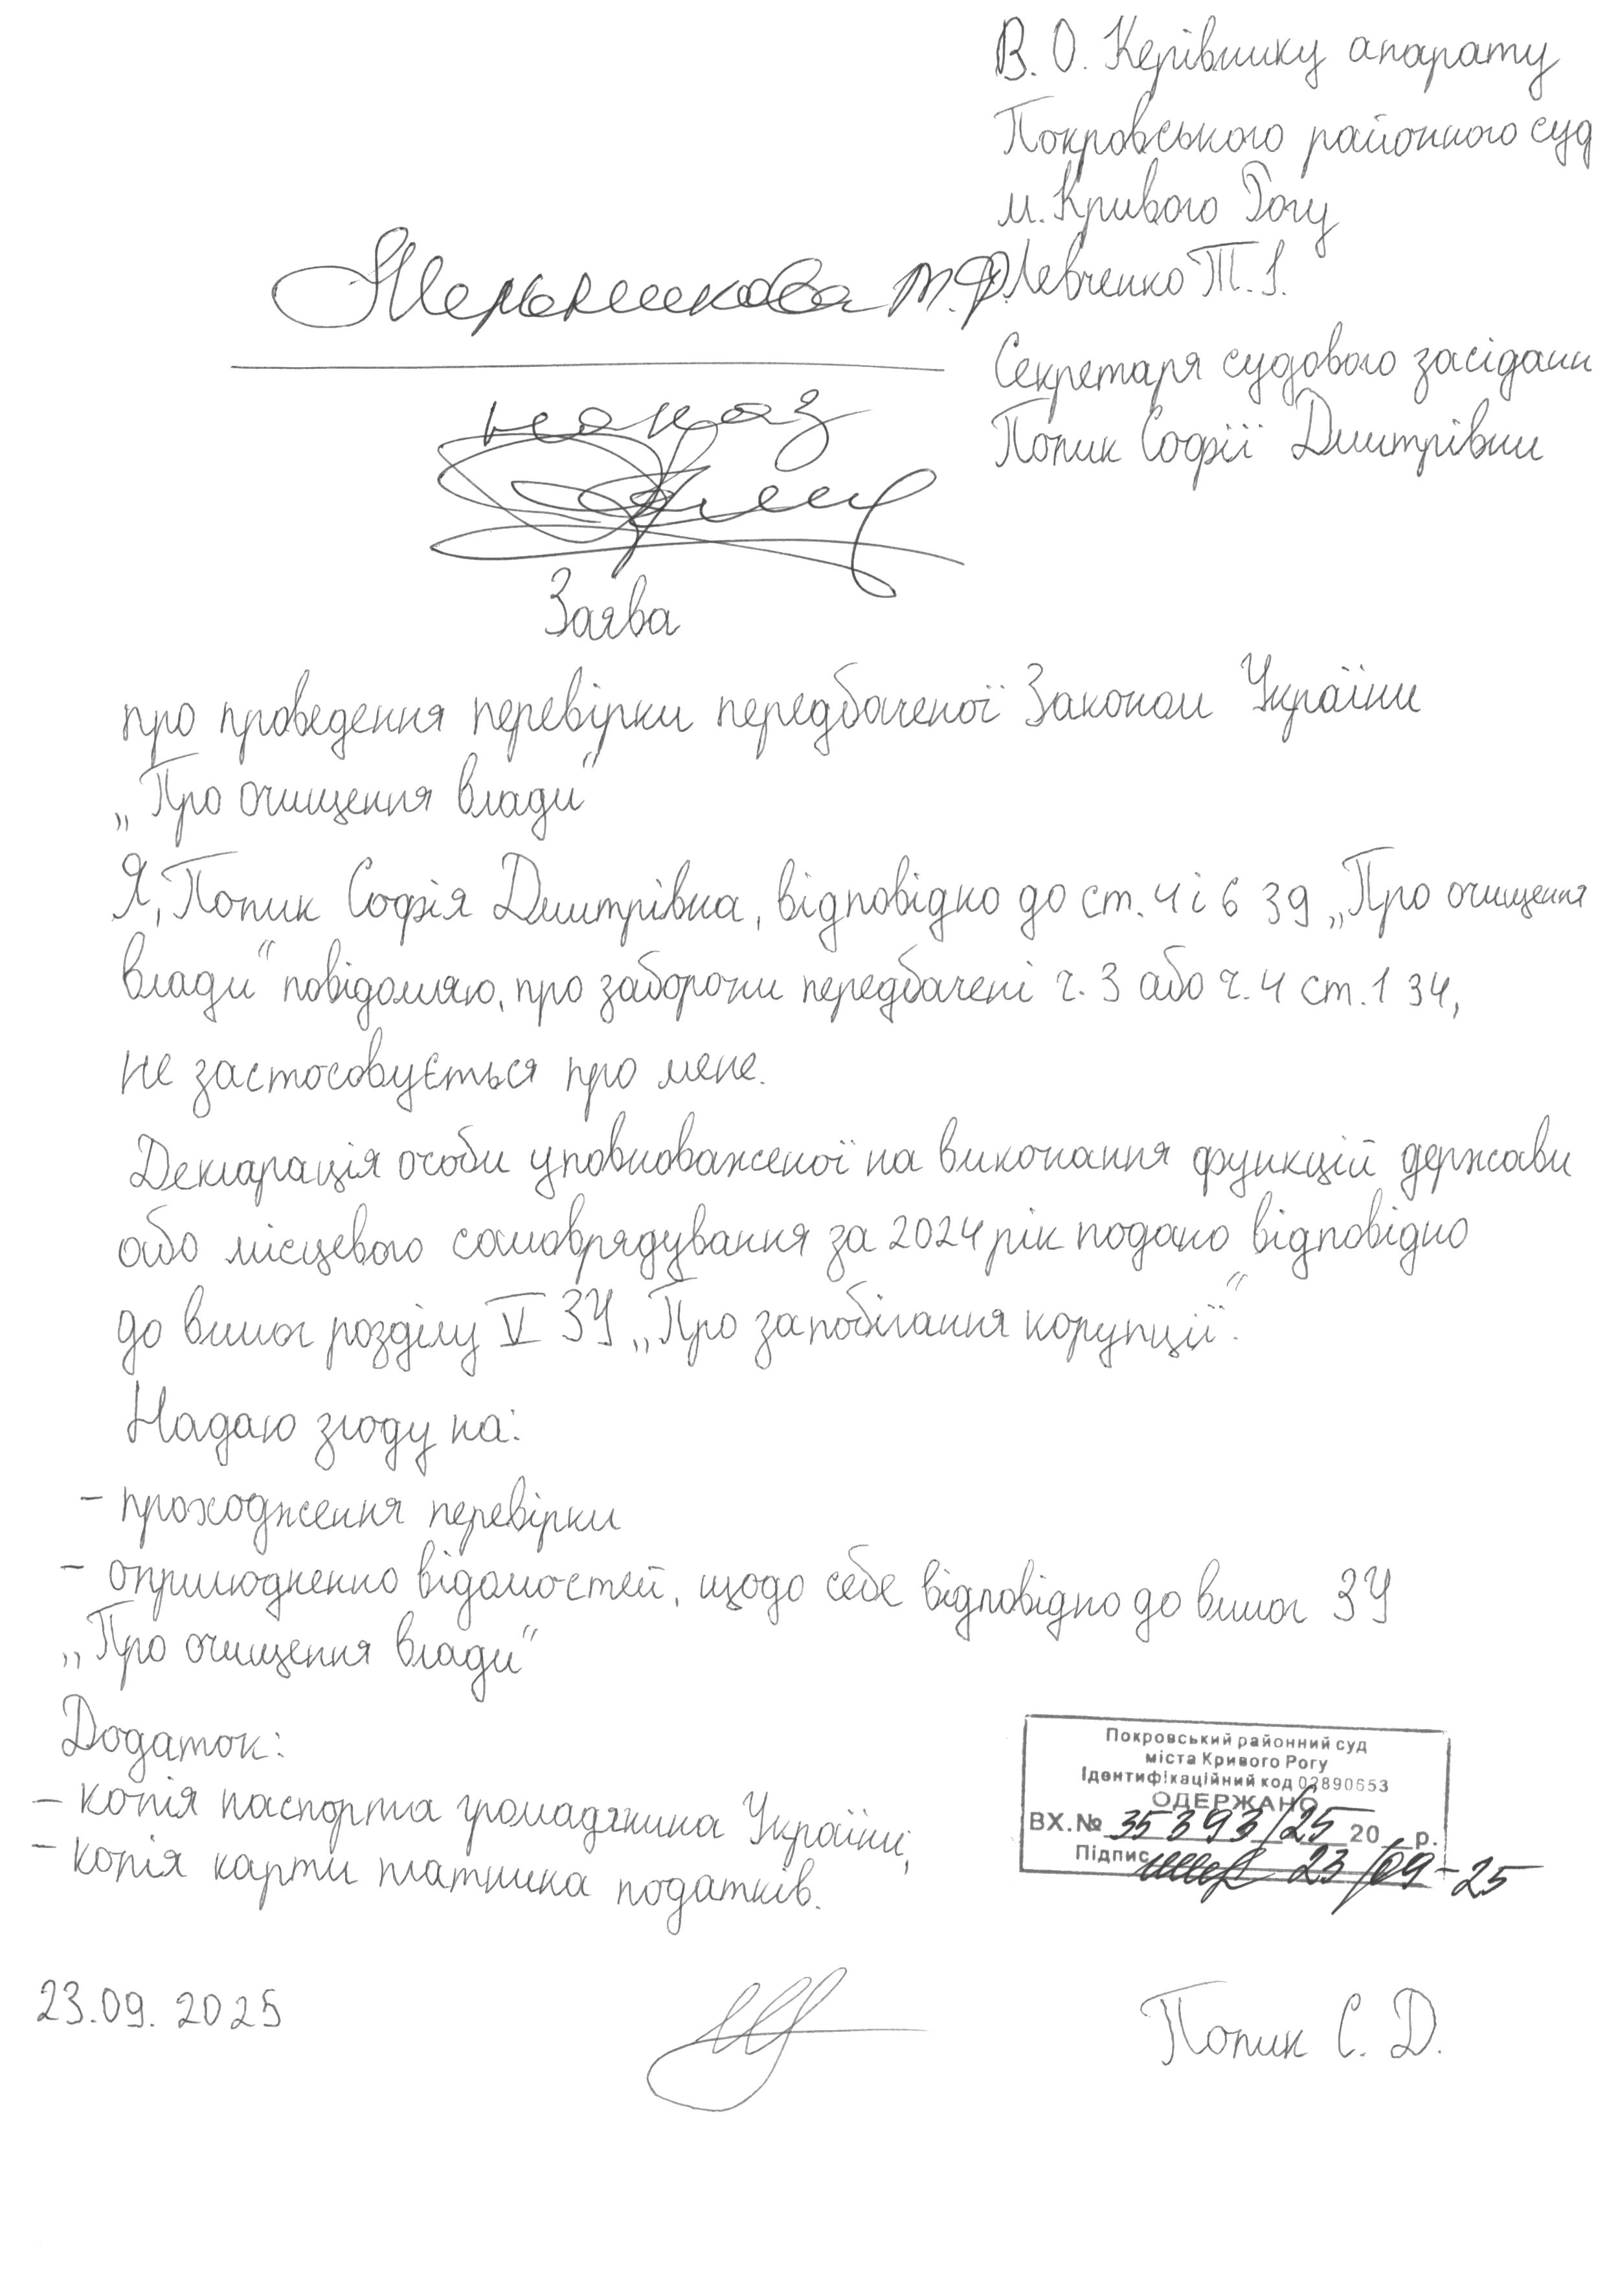 В. О. Керівнику апарату
Покровського районного суд
м. Кривого Рогу
Левченко Т. І.
Секретаря судового засідани
Попик Софії Дмитрівни
Мельникова Т.Ф.
наказ
Заява
про проведення перевірки передбаченої Законом України
„Про очищення влади"
Я, Попик Софія Дмитрівна, відповідно до ст. 4 і 6 ЗУ „Про очищення
влади" повідомляю, про заборони передбачені ч. 3 або ч. 4 ст. 1 ЗУ,
не застосовується про мене.
Декларація особи уповноваженої на виконання функцій держави
або місцевого самоврядування за 2024 рік подано відповідно
до вимог розділу V ЗУ „Про запобігання корупції".
Надаю згоду на:
- проходження перевірки
- оприлюдненно відомостей, щодо себе відповідно до вимог ЗУ
„Про очищення влади"
Додаток:
- копія паспорта громадянина України;
- копія карти платника податків.
Покровський районний суд
міста Кривого Рогу
Ідентифікаційний код 02890653
ОДЕРЖАНО
ВХ.№ 35393/25 20 р.
Підпис 23/09-25
23.09.2025
Попик С. Д.